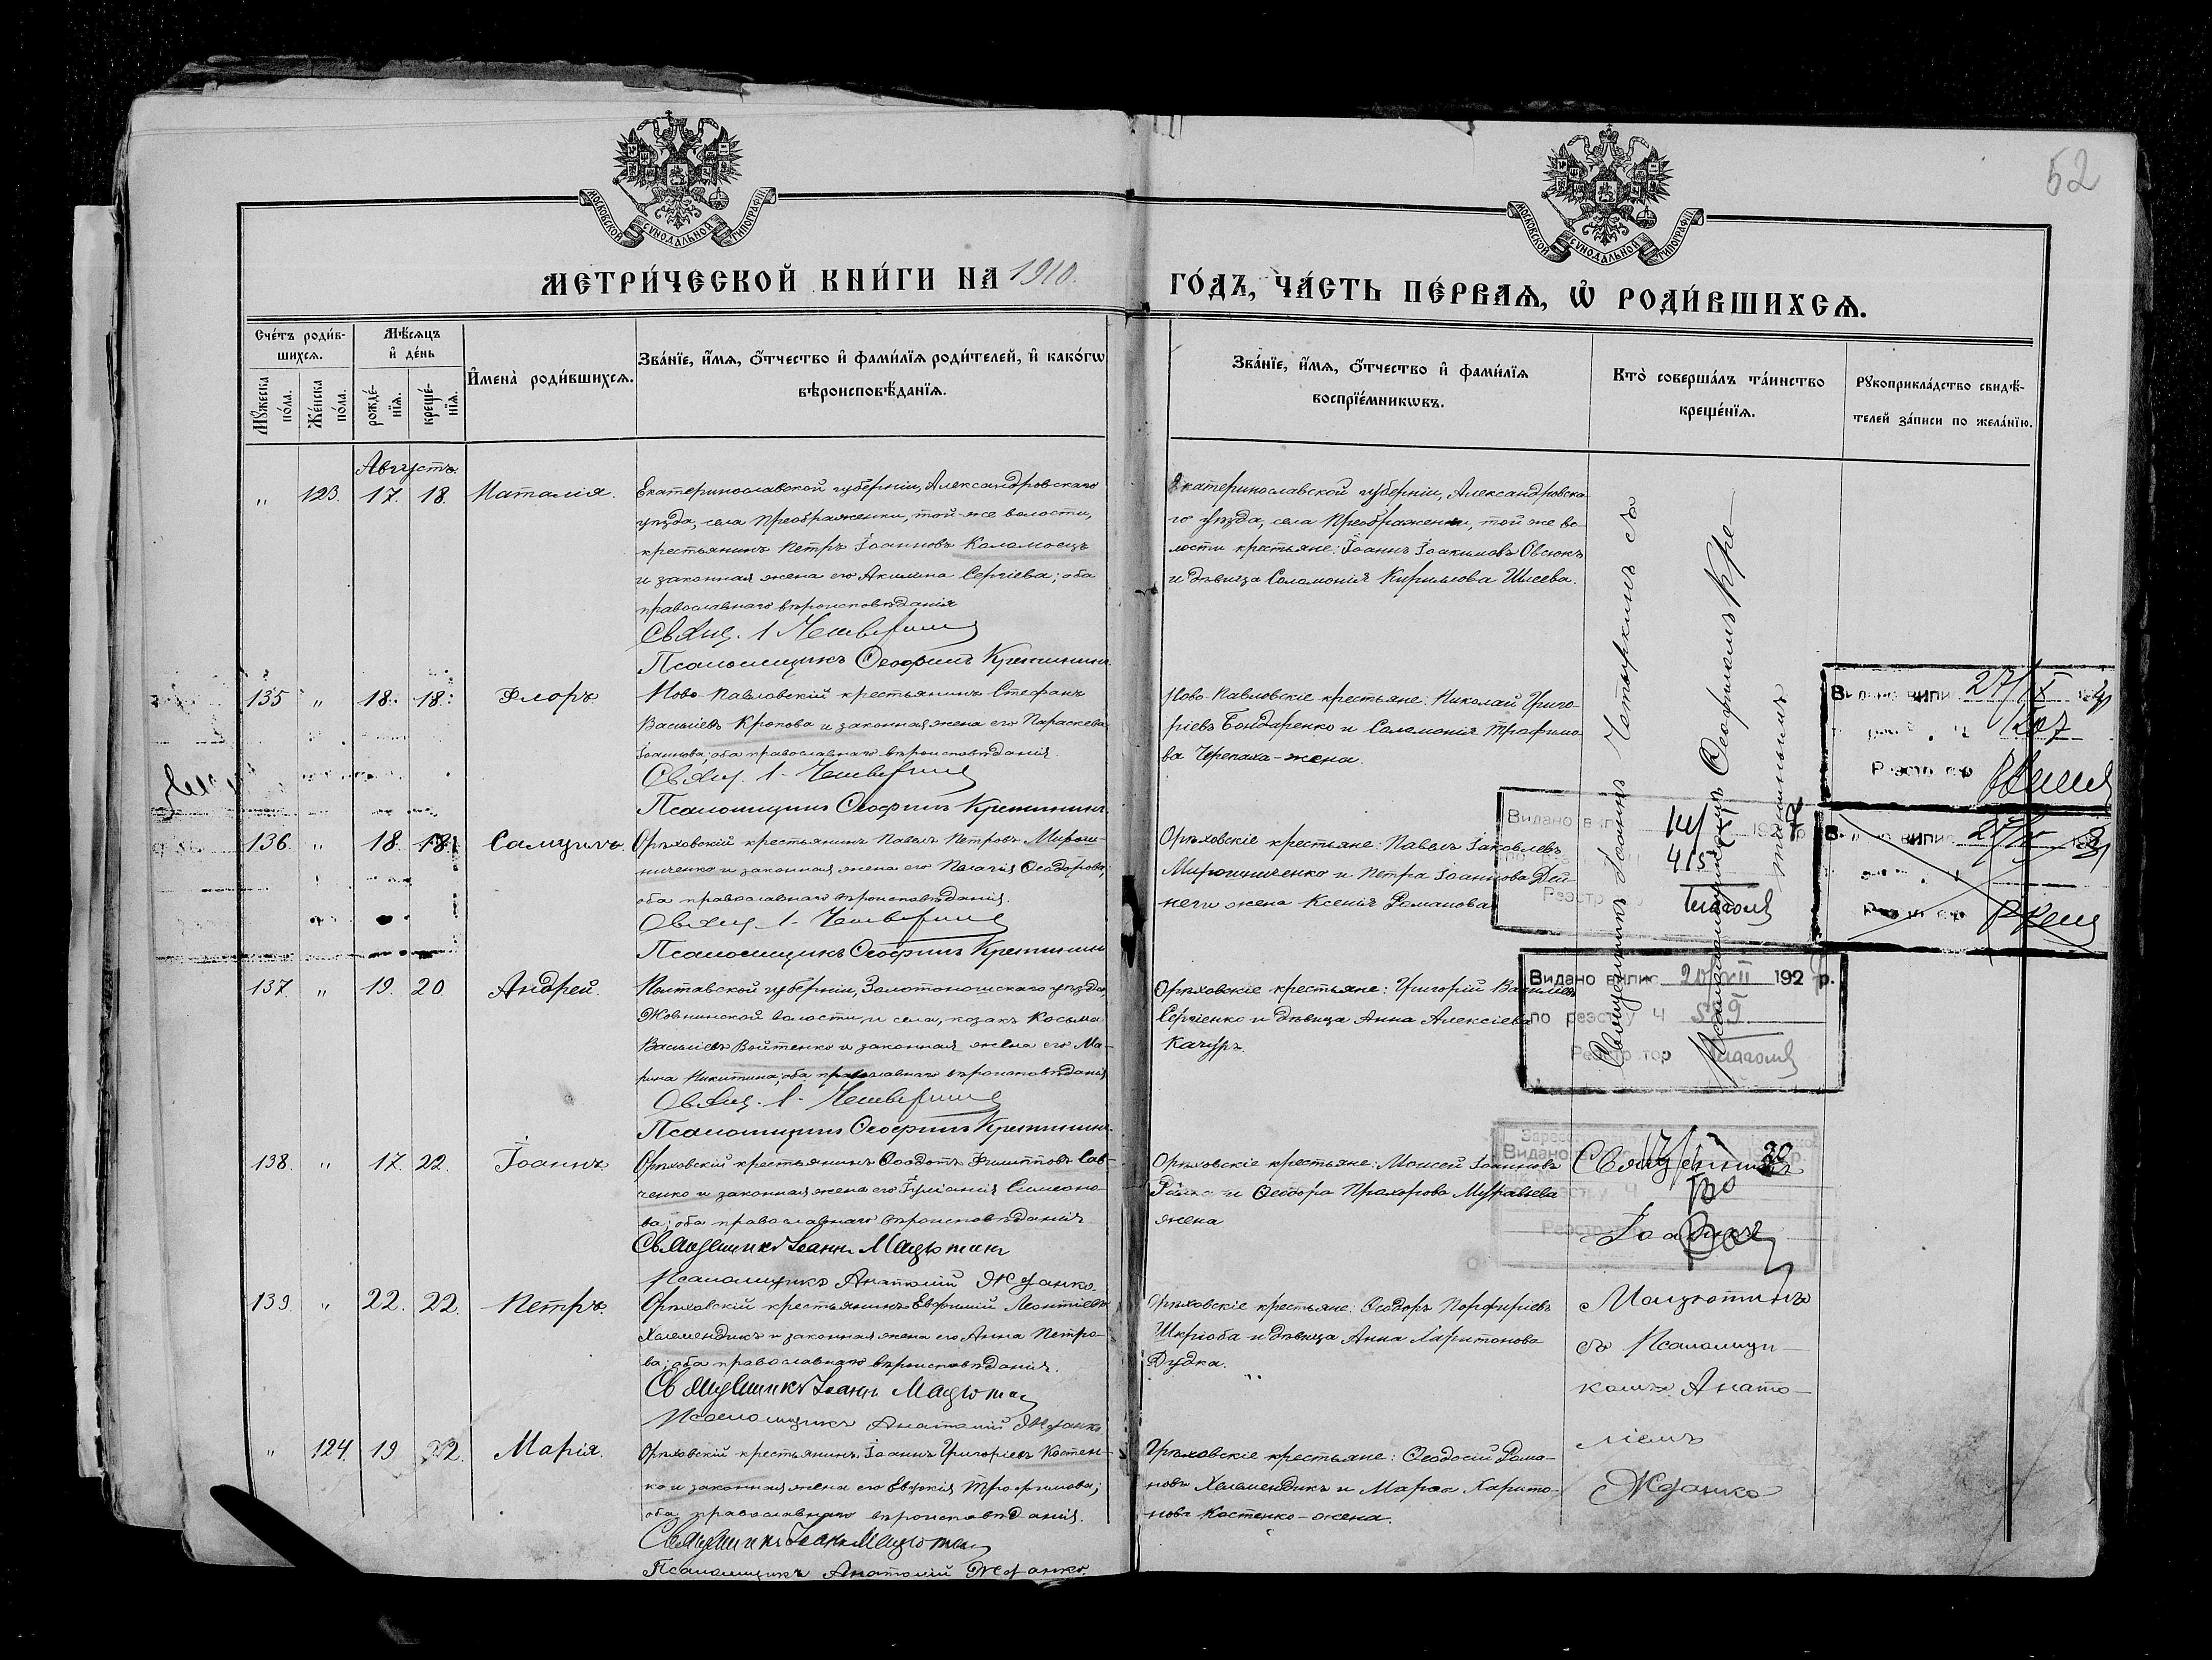 52
МОСКОВСКОЙ СѴНОДАЛЬНОЙ ТИПОГРАФІИ
МОСКОВСКОЙ СѴНОДАЛЬНОЙ ТИПОГРАФІИ
МЕТРИ́ЧЕСКОЙ КНИ́ГИ НА 1910.
ГО́ДЪ, ЧА́СТЬ ПЕ́РВАѦ, Ѡ҆ РОДИ́ВШИХСѦ.
Сче́тъ роди́в-
шихсѧ.
Мꙋ́жеска
по́ла.
Же́нска
по́ла.
Мѣ́сѧцъ
и҆ де́нь
рожде́-
нїѧ.
креще́-
нїѧ.
И҆мена̀ роди́вшихсѧ.
Зва́нїе, и҆́мѧ, ѻ҆́тчество и҆ фами́лїѧ роди́телей, и҆ како́гѡ
вѣроисповѣ́данїѧ.
Зва́нїе, и҆́мѧ, ѻ҆́тчество и҆ фами́лїѧ
воспрїе́мникѡвъ.
Кто̀ соверша́лъ та́инство
креще́нїѧ.
Рꙋкоприкла́дство свидѣ́-
телей за́писи по жела́нїю.
Августъ
" 123. 17. 18. Наталія.
Екатеринославской губерніи, Александровскаго
уѣзда, села Преображенки, той-же волости,
крестьянинъ Петръ Іоанновъ Коломоецъ
и законная жена его Акилина Сергіева; оба
православнаго вѣроисповѣданія
Свящ. І.
Псаломщикъ Ѳеофилъ
Екатеринославской губерніи, Александровска
го уѣзда, села Преображенки, той же во
лости крестьяне: Іоаннъ Іоакимовъ Овсюкъ
и дѣвица Соломонія Кириллова Шлеева.
135 " 18. 18. Флоръ
Ново-Павловскій крестьянинъ Стефанъ
Васильевъ Кропова и законная жена его Параскева
Іоаннова; оба православнаго вѣроисповѣданія.
Свящ. І.
Псаломщикъ Ѳеофилъ
Ново-Павловскіе крестьяне: Николай Григо
ріевъ Бондаренко и Соломонія Трофимо
ва Черепаха-жена.
136. " 18. 18. Самуилъ.
Орѣховскій крестьянинъ Павелъ Петровъ Мирош
ниченко и законная жена его Пелагія Ѳеодорова;
оба православнаго вѣроисповѣданія.
Свящ. І.
Псаломщикъ Ѳеофилъ
Орѣховскіе крестьяне: Павелъ Іаковлевъ
Мирошниченко и Петра Іоаннова Дей
неги жена Ксенія Романова
137 " 19. 20. Андрей.
Полтавской губерніи, Золотоношскаго уѣзда,
Жовнинской волости и села, козакъ Косьма
Васильевъ Войтенко и законная жена его Ма-
рина Никитина; оба православнаго вѣроисповѣданія
Свящ. І.
Псаломщикъ Ѳеофилъ
Орѣховскіе крестьяне: Григорій Васильевъ
Сергіенко и дѣвица Анна Алексіева
Качуръ.
138. " 17. 22. Іоаннъ
Орѣховскій крестьянинъ Ѳеодотъ Филипповъ Сав-
ченко и законная жена его Іуліанія Симеоно-
ва; оба православнаго вѣроисповѣданія.
Священникъ Іоаннъ Мацютинъ
Псаломщикъ Анатолій Жданко.
Орѣховскіе крестьяне: Моисей
и Ѳеодора Прохорова Муравьева
жена
139. " 22. 22. Петръ
Орѣховскій крестьянинъ Евфимій Леонтіевъ
Халемендикъ и законная жена его Анна Петро-
ва; оба православнаго вѣроисповѣданія.
Священникъ Іоаннъ
Псаломщикъ Анатолій Жданко
Орѣховскіе крестьяне: Ѳеодоръ Порфиріевъ
Шкрюба и дѣвица Анна Харитонова
Дудка.
" 124. 19 22. Марія.
Орѣховскій крестьянинъ Іоаннъ Григоріевъ Костен-
ко и законная жена его Евдокія Трофимова;
оба православнаго вѣроисповѣданія.
Священникъ Іоаннъ
Псаломщикъ Анатолій Жданко.
Орѣховскіе крестьяне: Ѳеодосій Рома-
новъ Халемендикъ и Марѳа Харито-
нова Костенко-жена.
Священникъ Іоаннъ съ
Псаломщикомъ Ѳеофиломъ Кре-
Священникъ
Іоаннъ
Мацютинъ
съ Псаломщи-
комъ Анато-
ліемъ
Жданко
Видано випис 27/IX
Реєстратор
Видано вип. 14/XI 1927 р.
415
Реєстратор
Видано випис
Видано випис 20/XII 192 р.
по реєстру Ч 559
Реєстратор
Видано
Реєстратор